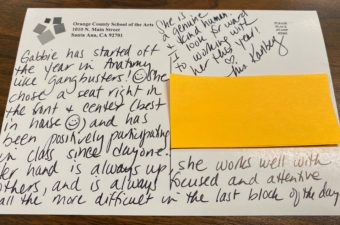 Orange County School of the Arts
1010 N. Main Street
Santa Ana, CA 92701
Gabbie has started off
the year in Anatomy
like gangbusters! She
chose a seat right in
the front & center (best
in house) and has
been positively participating
in class since day one.
Her hand is always up
others, and is always
all the more difficult in the last block of the day
she works well with
focused and attentive
She is
a genuine
& kind human.
I look forward
to working with
her this year!